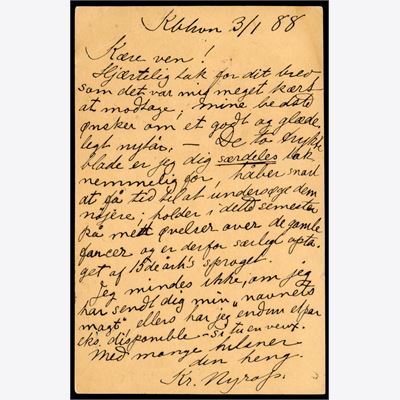 Kbhvn 3/1 88
Kære ven!
Hjærtelig tak for dit brev
som det var mig meget kært
at modtage, mine bedste
ønsker om et godt og glæde
ligt nytår, — De to
blade er jeg dig særdeles tak
nemmelig for, håber snart
at få tid til at undersøge dem
nøjere; holder i dette semester
på mit øvelser over de gamle
og er derfor særligt opta-
get af 15de årh's sproget.
Jeg mindes ikke, om jeg
har sendt dig min "navnets
magt", ellers har jeg endnu
disponible –
Med mange hilsner
din heng.
Kr. Nyrop.